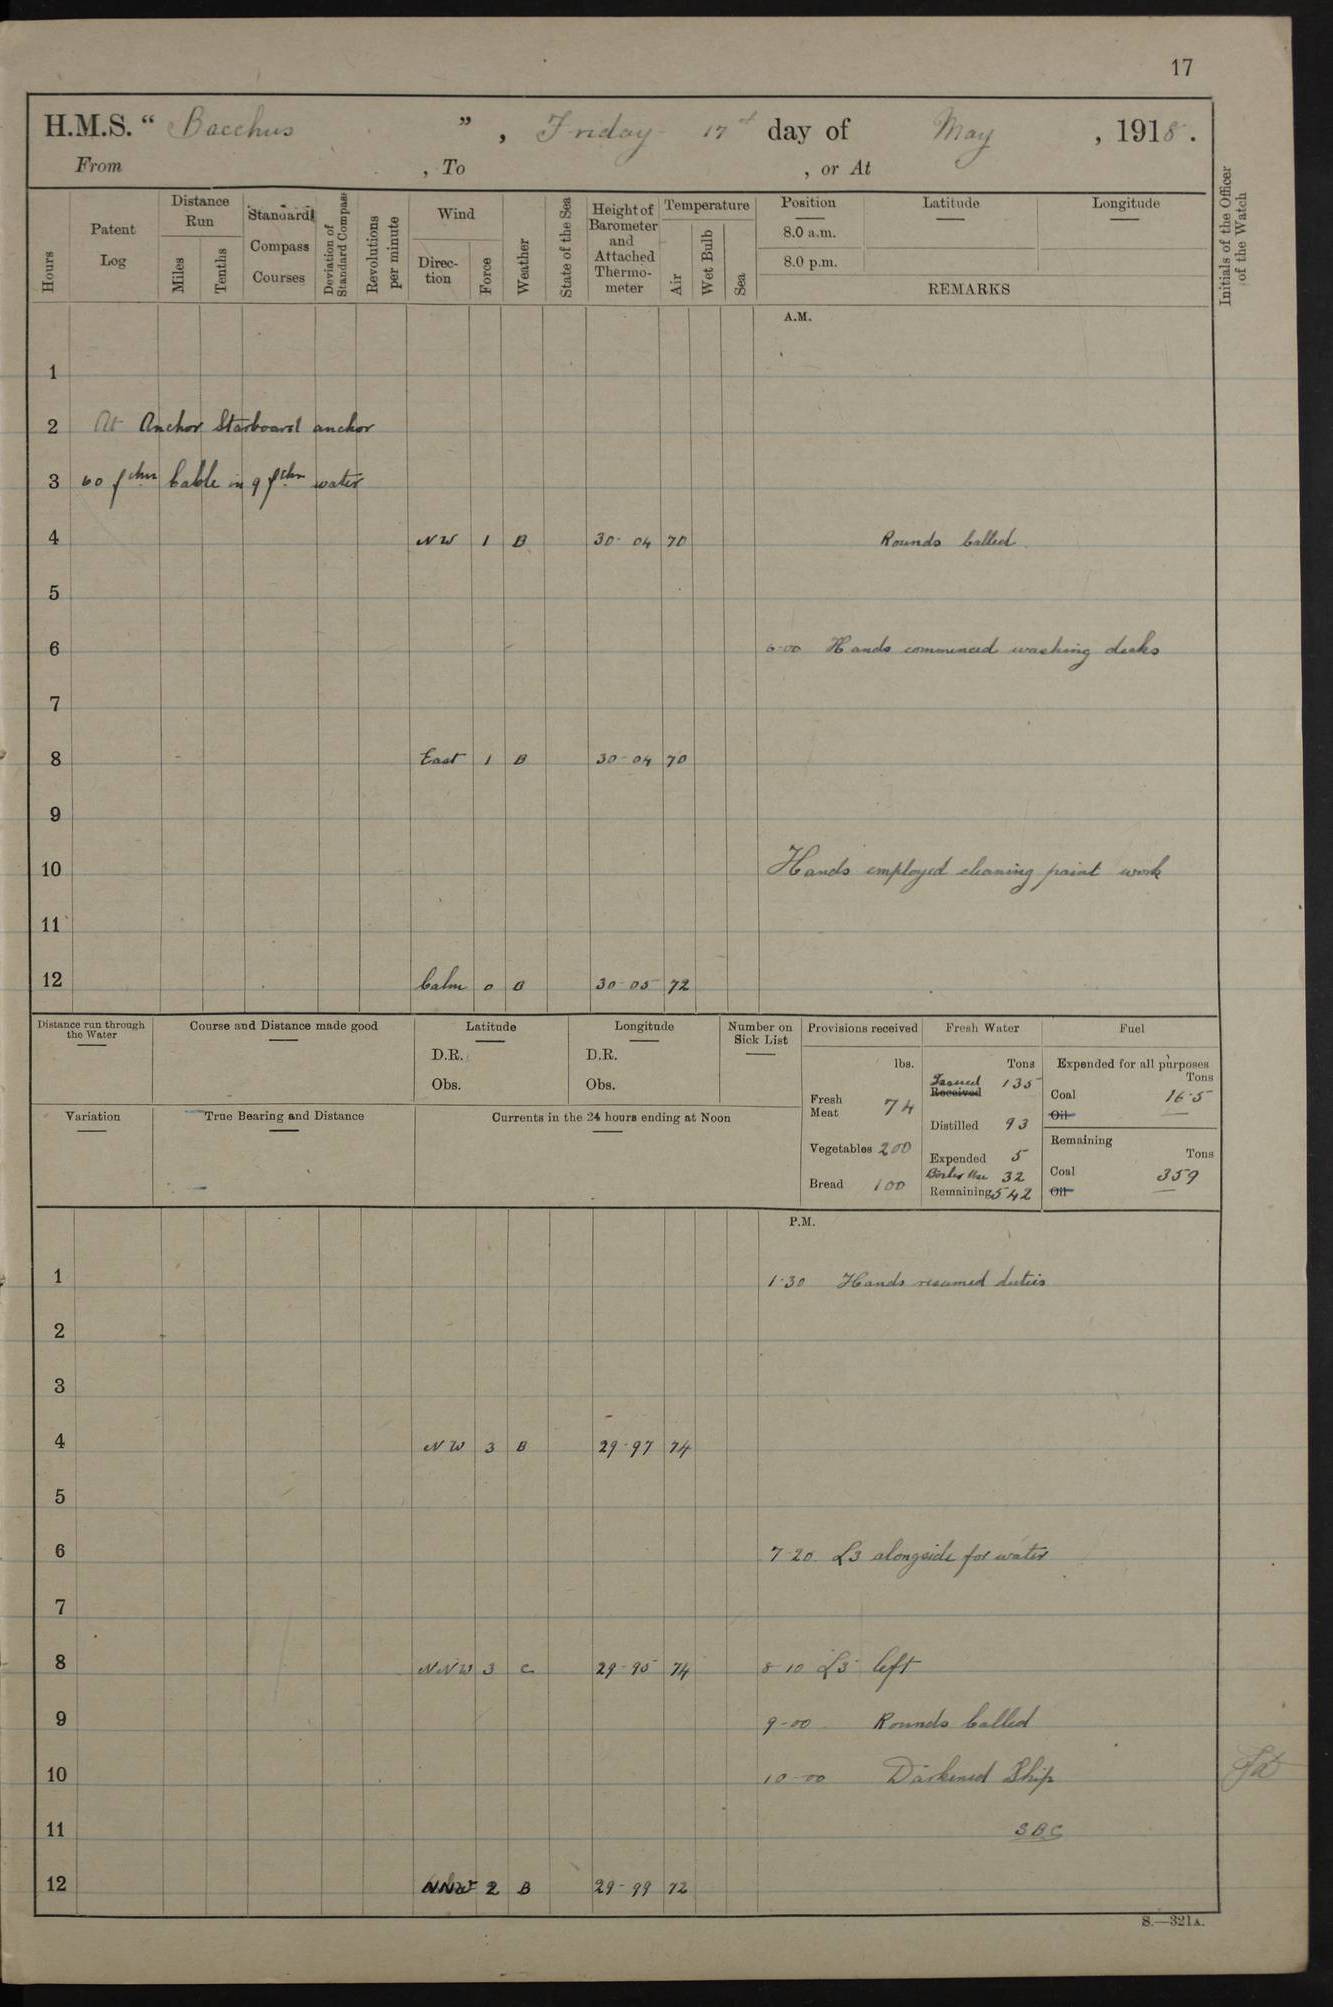 17
H.M.S. “ Bacchus ” , Friday 17th day of May , 1918 .
From , To , or At
Hours
Patent Log
Distance Run
Miles
Tenths
Standard Compass Courses
Deviation of Standard Compass
Revolutions per minute
Wind
Direc- tion
Force
Weather
State of the Sea
Height of Barometer and Attached Thermo- meter
Temperature
Air
Wet Bulb
Sea
Position
8.0 a.m.
8.0 p.m.
Latitude
Longitude
REMARKS
Initials of the Officer of the Watch
A.M.
1
2 At Anchor Starboard anchor
3 60 fthm Cable in 9 fthm water
4 NW 1 B 30-04 70 Rounds Called
5
6 6-00 Hands commenced washing decks
7
8 East 1 B 30-04 70
9
10 Hands employed cleaning paint work
11
12 Calm 0 B 30-05 72
Distance run through the Water
Course and Distance made good
Latitude
D.R.
Obs.
Longitude
D.R.
Obs.
Number on Sick List
Variation
True Bearing and Distance
Currents in the 24 hours ending at Noon
Provisions received
lbs.
Fresh Meat 74
Vegetables 200
Bread 100
Fresh Water
Tons
Issued 135
Received
Distilled 93
Expended 5
Boiler Use 32
Remaining 542
Fuel
Expended for all purposes
Tons
Coal 16·5
Oil
Remaining
Tons
Coal 359
Oil
P.M.
1 1-30 Hands resumed duties
2
3
4 NW 3 B 29-97 74
5
6 7-20 L3 alongside for water
7
8 NNW 3 C 29-95 74 8-10 L3 left
9 9-00 Rounds Called
10 10-00 Darkened Ship
11 SBC
12 NNW 2 B 29-99 72
S.—321A.